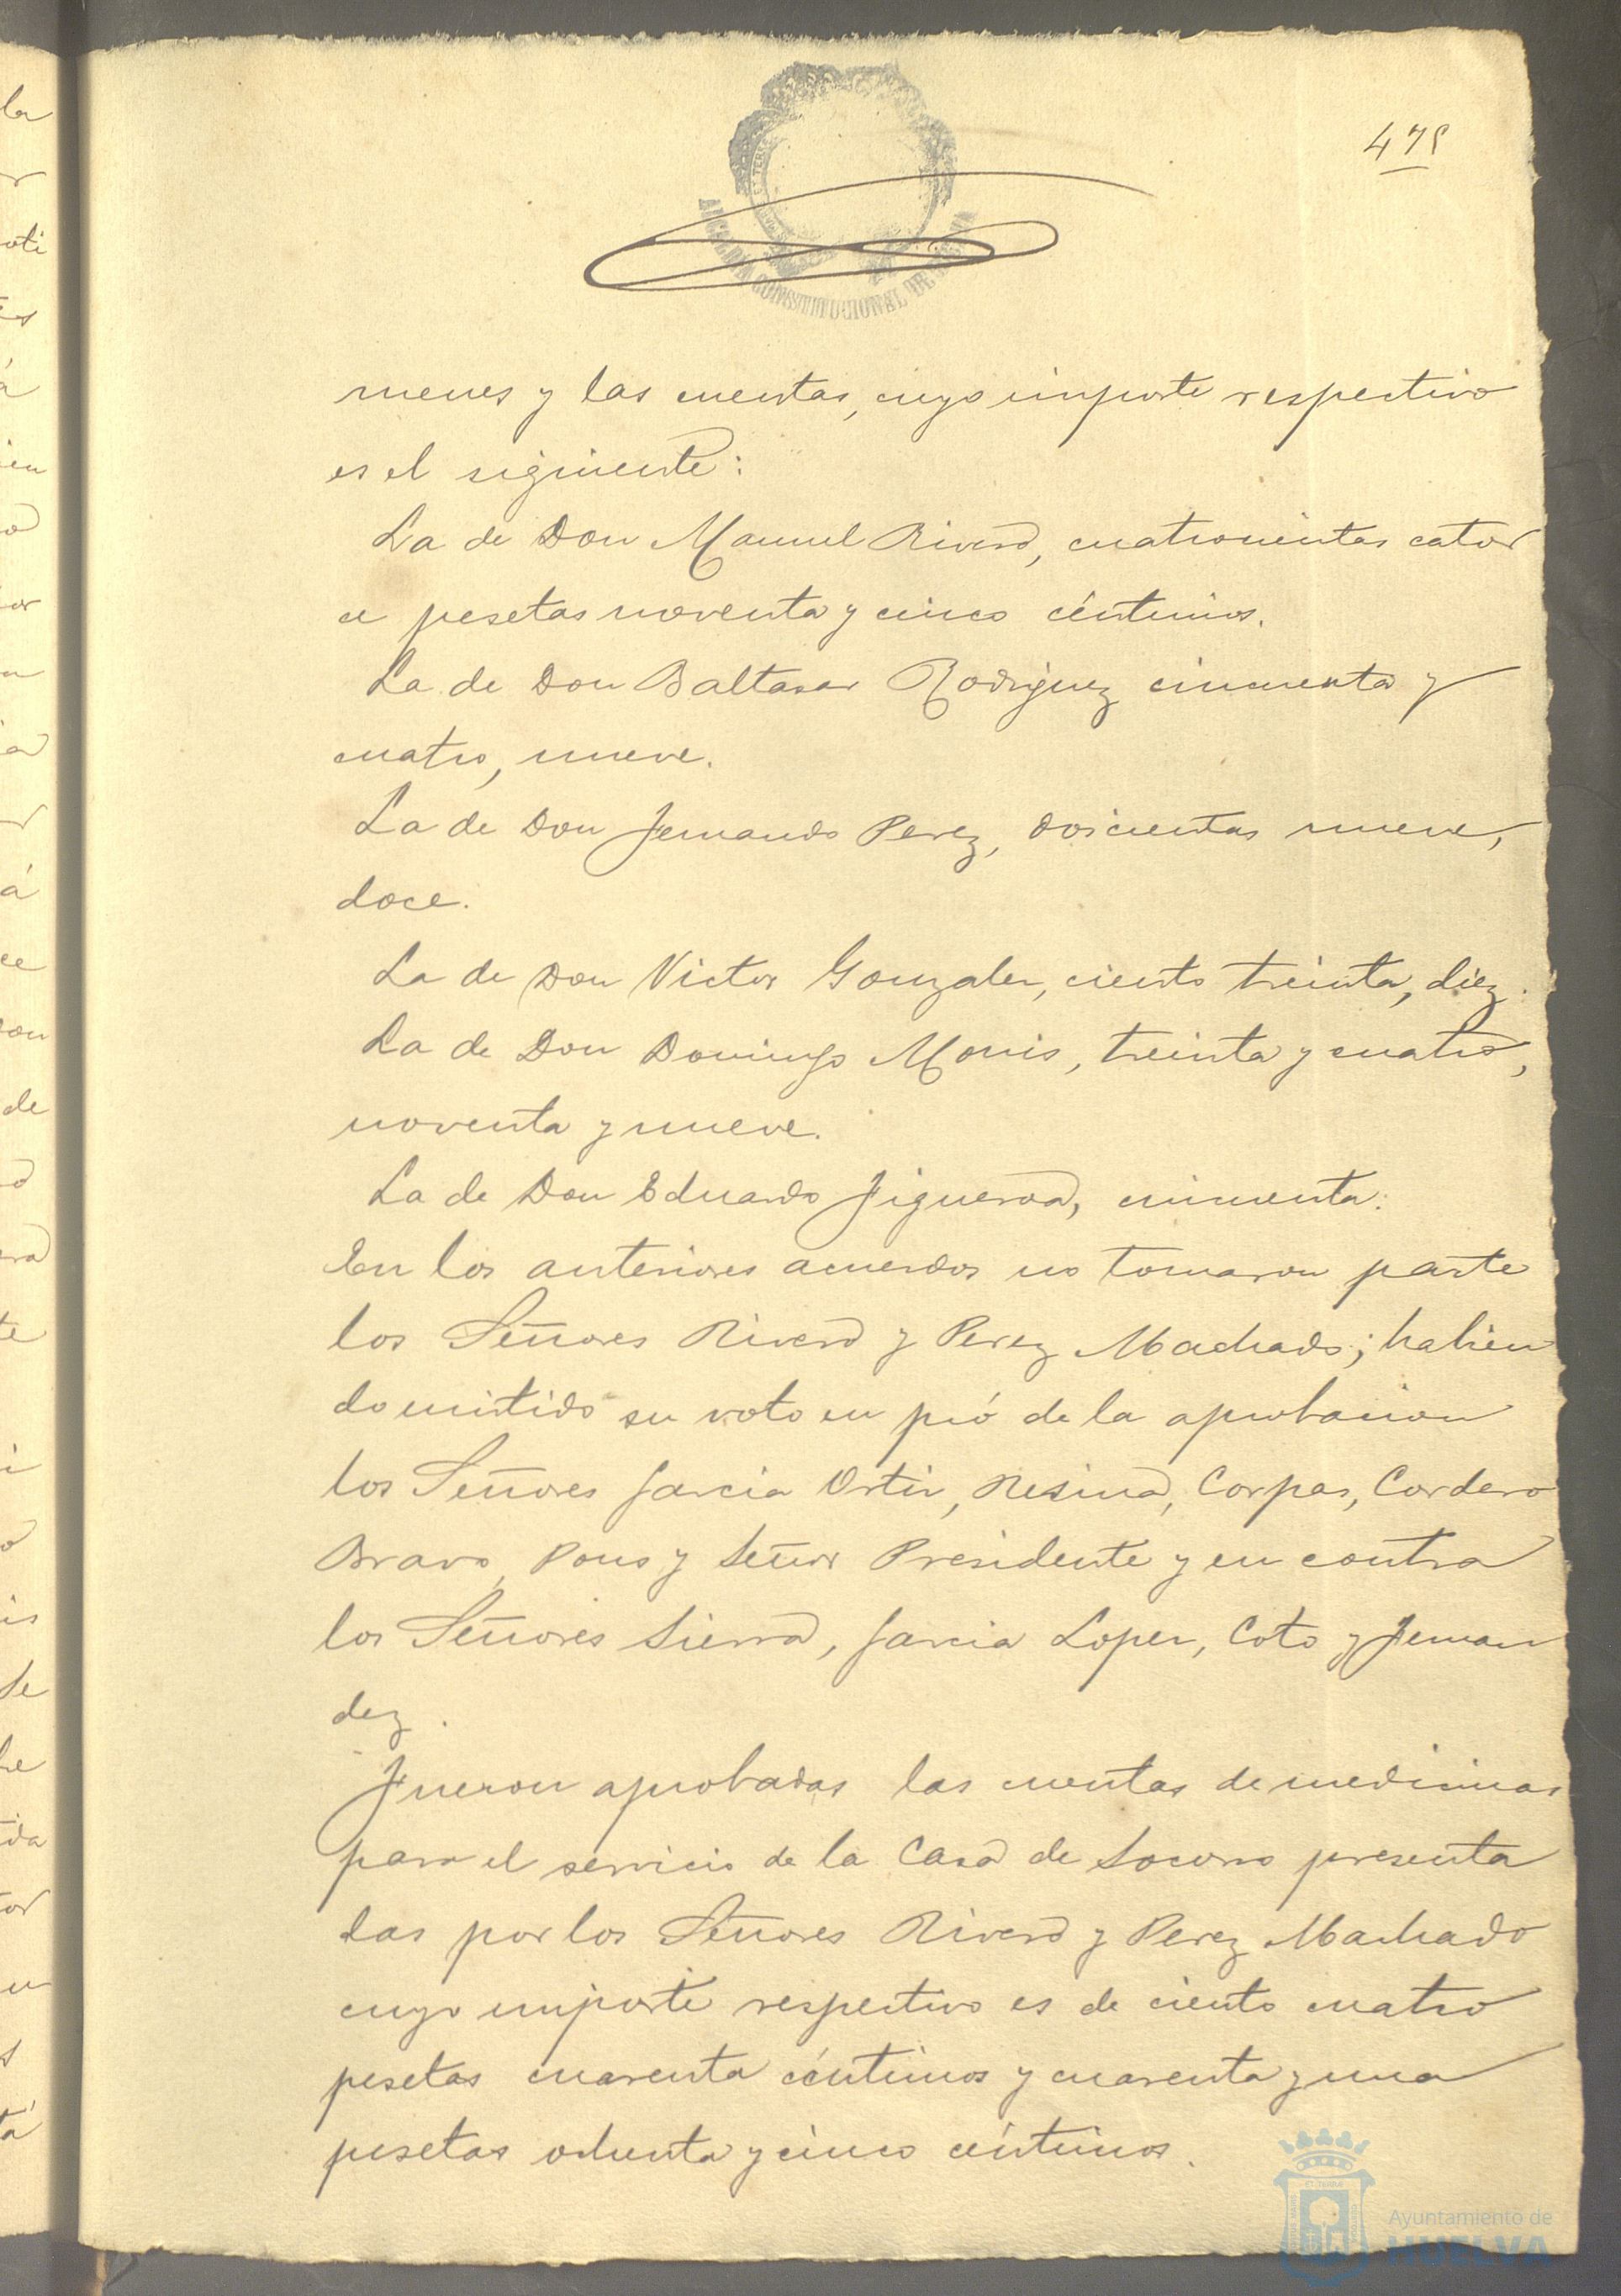 475
ALCALDIA CONSTITUCIONAL DE
menes y las cuentas, cuyo importe respectivo
es el siguiente:
La de Don Manuel Rivero, cuatrocientas cator
ce pesetas noventa y cinco céntimos.
La de Don Baltasar Rodriguez cincuenta y
cuatro, nueve.
La de Don Fernando Perez, doscientas nueve,
doce.
La de Don Victor Gonzalez, ciento treinta, diez.
La de Don Domingo Monis, treinta y cuatro,
noventa y nueve.
La de Don Eduardo Figueroa, cincuenta.
En los anteriores acuerdos no tomaron parte
los Señores Rivero y Perez Machado; habien
do emitido su voto en pró de la aprobacion
los Señores Garcia Ortiz, Resina, Corpas, Cordero
Bravo, Pons y Señor Presidente y en contra
los Señores Sierra, Garcia Lopez, Coto y Fernan
dez.
Fueron aprobadas las cuentas de medicinas
para el servicio de la Casa de Socorro presenta
das por los Señores Rivero y Perez Machado
cuyo importe respectivo es de ciento cuatro
pesetas cuarenta céntimos y cuarenta y una
pesetas ochenta y cinco céntimos.
Ayuntamiento de
HUELVA